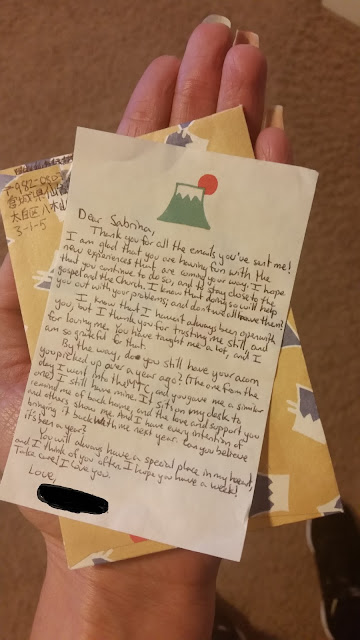 〒982-080
宮城県仙台
太白区八木山
3-1-5
Dear Sabrina,
Thank you for all the emails you've sent me!
I am glad that you are having fun with the
new experiences that are coming your way. I hope
that you continue to do so, and to stay close to the
gospel and the Church. I know that doing so will help
you out with your problems; and don't we all have them!
I know that I haven't always been open with
you, but I thank you for trusting me still, and
for loving me. You have taught me a lot, and I
am so grateful for that.
By the way, do you still have your acorn
you picked up over a year ago? (The one from the
day I went into the MTC, and you gave me a similar
one) I still have mine. It sits on my desk to
remind me of back home, and the love and support you
and others show me, and I have every intention of
bringing it back with me next year. Can you believe
it's been a year?
You will always have a special place in my heart,
and I think of you often. I hope you have a week!
Take care! I love you.
Love,